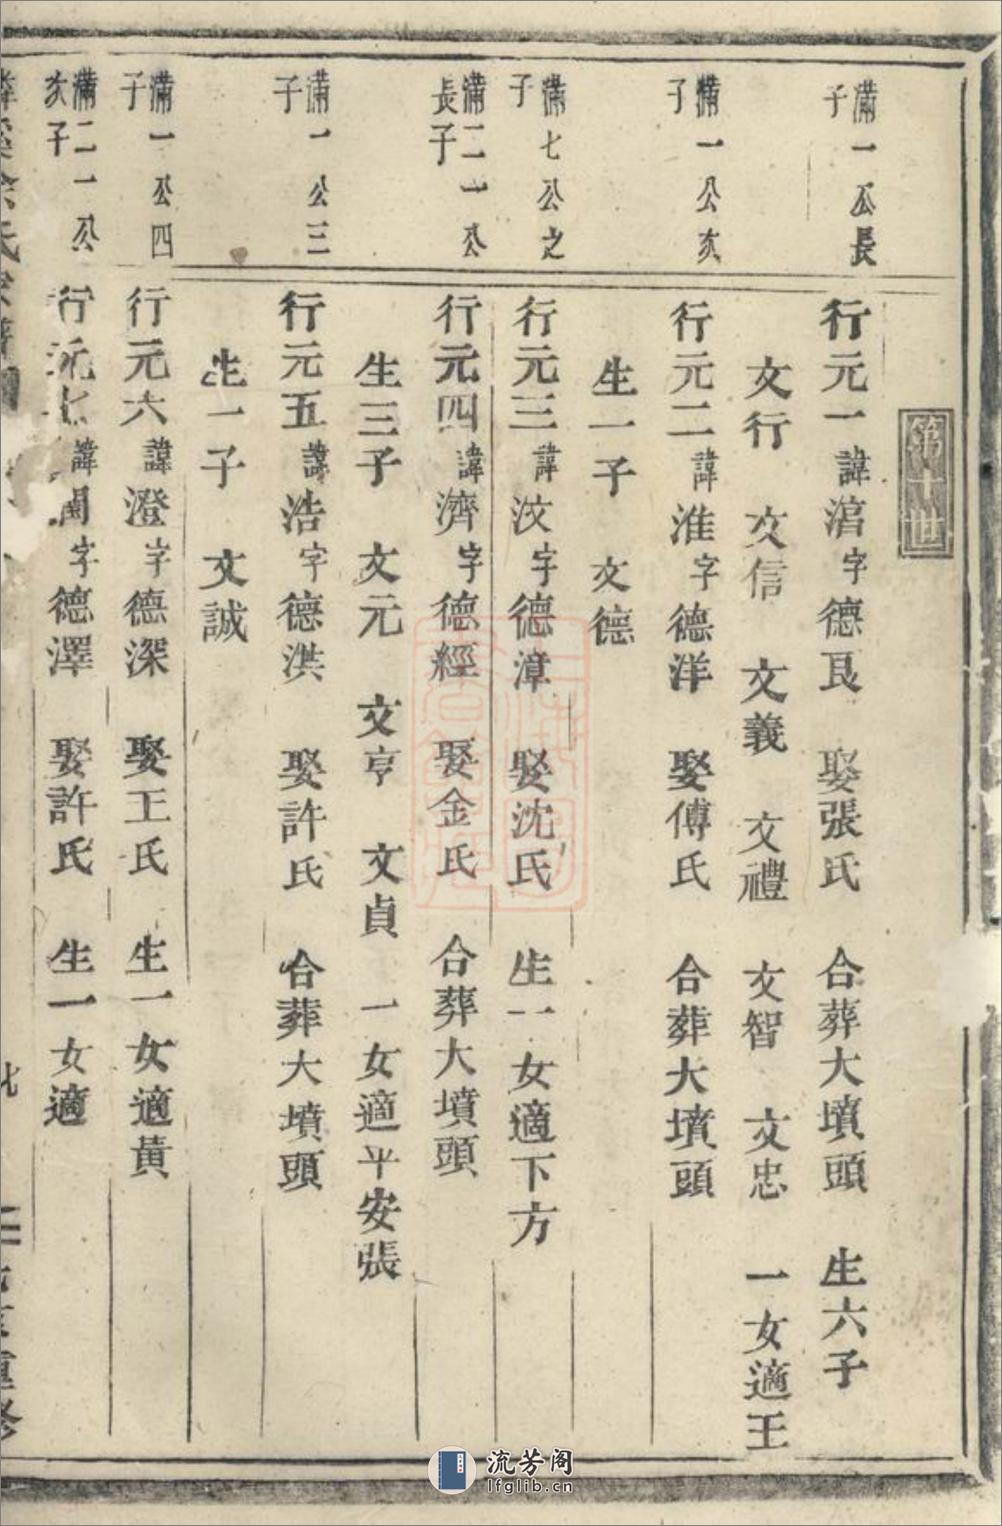 第十世
滿一公長子
行元一諱涫字德艮 娶張氏 合葬大墳頭 生六子
文行 文信 文義 文禮 文智 文忠 一女適王
滿一公次子
行元二諱淮字德洋 娶傅氏 合葬大墳頭
生一子 文德
滿七公之子
行元三諱汶字德漳 娶沈氏 生一女適下方
滿二一公長子
行元四諱濟字德經 娶金氏 合葬大墳頭
生三子 文元 文亨 文貞 一女適平安張
滿一公三子
行元五諱浩字德淇 娶許氏 合葬大墳頭
生一子 文誠
滿一公四子
行元六諱澄字德深 娶王氏 生一女適黃
滿二一公次子
行元七諱字德澤 娶許氏 生一女適
重修
流芳阁
lfglib.cn